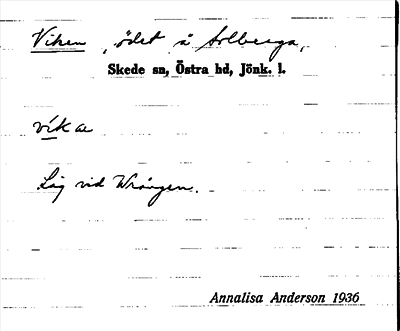 Viken, ödet å Solberga,
Skede sn, Östra hd, Jönk. l.
vik ae
Låg vid Wrången.
Annalisa Anderson 1936